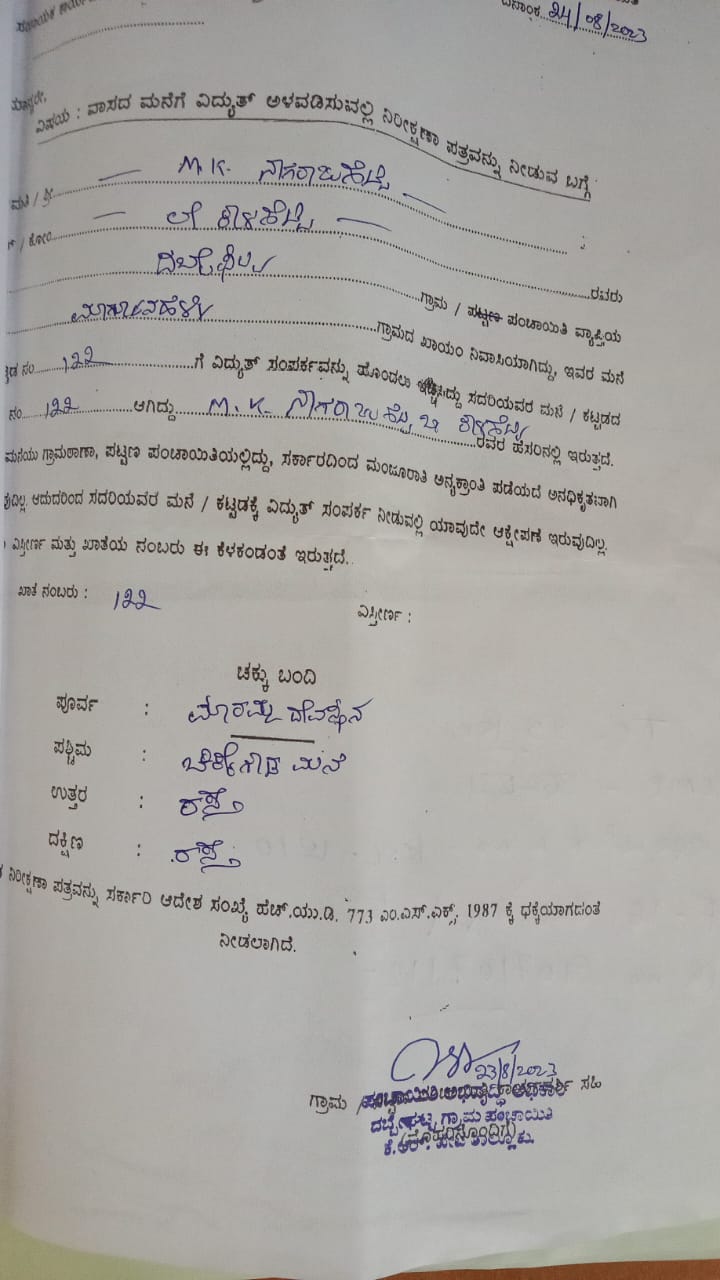 ದಿನಾಂಕ 24/08/2023
ಮಾನ್ಯರೇ,
ವಿಷಯ : ವಾಸದ ಮನೆಗೆ ವಿದ್ಯುತ್ ಅಳವಡಿಸುವಲ್ಲಿ ನಿರೀಕ್ಷಣಾ ಪತ್ರವನ್ನು ನೀಡುವ ಬಗ್ಗೆ
ಮತಿ / ಶ್ರೀ M.K. ನಾಗರಾಜಶೆಟ್ಟಿ
/ ಕೋಂ ಲೇ ಕಾಳಶೆಟ್ಟಿ
ರವರು
ಗ್ರಾಮ / ಪಟ್ಟಣ ಪಂಚಾಯಿತಿ ವ್ಯಾಪ್ತಿಯ
ಗ್ರಾಮದ ಖಾಯಂ ನಿವಾಸಿಯಾಗಿದ್ದು, ಇವರ ಮನೆ
ನಂ 122 ಗೆ ವಿದ್ಯುತ್ ಸಂಪರ್ಕವನ್ನು ಹೊಂದಲು ಸದರಿಯವರ ಮನೆ / ಕಟ್ಟಡದ
ನಂ. 122 ಆಗಿದ್ದು M.K. ನಾಗರಾಜಶೆಟ್ಟಿ ಬಿ ಕಾಳಶೆಟ್ಟಿ ರವರ ಹೆಸರಿನಲ್ಲಿ ಇರುತ್ತದೆ.
ಮನೆಯು ಗ್ರಾಮಠಾಣಾ, ಪಟ್ಟಣ ಪಂಚಾಯಿತಿಯಲ್ಲಿದ್ದು, ಸರ್ಕಾರದಿಂದ ಮಂಜೂರಾತಿ ಅನ್ಯಕ್ರಾಂತಿ ಪಡೆಯದೆ ಅನಧಿಕೃತವಾಗಿ
ಆದುದರಿಂದ ಸದರಿಯವರ ಮನೆ / ಕಟ್ಟಡಕ್ಕೆ ವಿದ್ಯುತ್ ಸಂಪರ್ಕ ನೀಡುವಲ್ಲಿ ಯಾವುದೇ ಆಕ್ಷೇಪಣೆ ಇರುವುದಿಲ್ಲ.
ವಿಸ್ತೀರ್ಣ ಮತ್ತು ಖಾತೆಯ ನಂಬರು ಈ ಕೆಳಕಂಡಂತೆ ಇರುತ್ತದೆ.
ಖಾತೆ ನಂಬರು : 122 ವಿಸ್ತೀರ್ಣ :
ಚಕ್ಕು ಬಂದಿ
ಪೂರ್ವ : ಮಾರಮ್ಮ ದೇವಸ್ಥಾನ
ಪಶ್ಚಿಮ : ಮನೆ
ಉತ್ತರ : ರಸ್ತೆ
ದಕ್ಷಿಣ : ರಸ್ತೆ
ನಿರೀಕ್ಷಣಾ ಪತ್ರವನ್ನು ಸರ್ಕಾರಿ ಆದೇಶ ಸಂಖ್ಯೆ ಹೆಚ್.ಯು.ಡಿ. 773 ಎಂ.ಎಸ್.ಎಕ್ಸ್. 1987 ಕ್ಕೆ ಧಕ್ಕೆಯಾಗದಂತೆ
ನೀಡಲಾಗಿದೆ.
23/8/2023
ಗ್ರಾಮ / ಸಹಿ
ಗ್ರಾಮ ಪಂಚಾಯಿತಿ